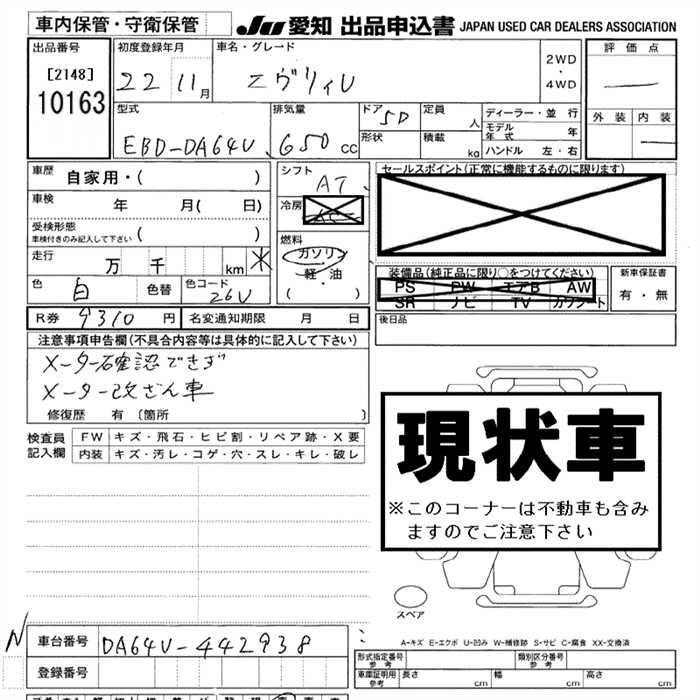 車内保管・守衛保管 JU 愛知 出品申込書 JAPAN USED CAR DEALERS ASSOCIATION
出品番号 初度登録年月 車名・グレード 2WD・4WD 評価点
[2148] 22 11月 エヴリィU
10163 外装 内装
型式 排気量 ドア 5D 定員 人 ディーラー・並行
モデル年式 年
EBD-DA64V 650cc 形状 積載 kg ハンドル 左・右
車歴 自家用・( ) シフト AT セールスポイント(正常に機能するものに限ります)
車検 年 月( 日) 冷房 AC
受検形態 車検付きのみ記入して下さい ( )
燃料 ガソリン
走行 万 千 km ※ 軽・油 ( ) 装備品(純正品に限り○をつけてください) 新車保証書
PS PW エアB AW 有・無
色 白 色替 色コード 26U SR ナビ TV カワシート
R券 9310円 名変通知期限 月 日 後日品
注意事項申告欄(不具合内容等は具体的に記入して下さい)
メーター確認できず
メーター改ざん車
修復歴 有 〔箇所 〕
現状車
検査員記入欄 FW キズ・飛石・ヒビ割・リペア跡・X要
内装 キズ・汚レ・コゲ・穴・スレ・キレ・破レ
※このコーナーは不動車も含み
ますのでご注意下さい
スペア
N 車台番号 DA64V-442938
A-キズ E-エクボ U-凹み W-補修跡 S-サビ C-腐食 XX-交換済
登録番号 形式指定番号 参考 類別区分番号 参考
車庫証明用 参考 長さ cm 幅 cm 高さ cm